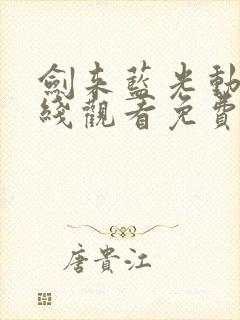 劍来藍光動
綫觀看免費
唐貴江